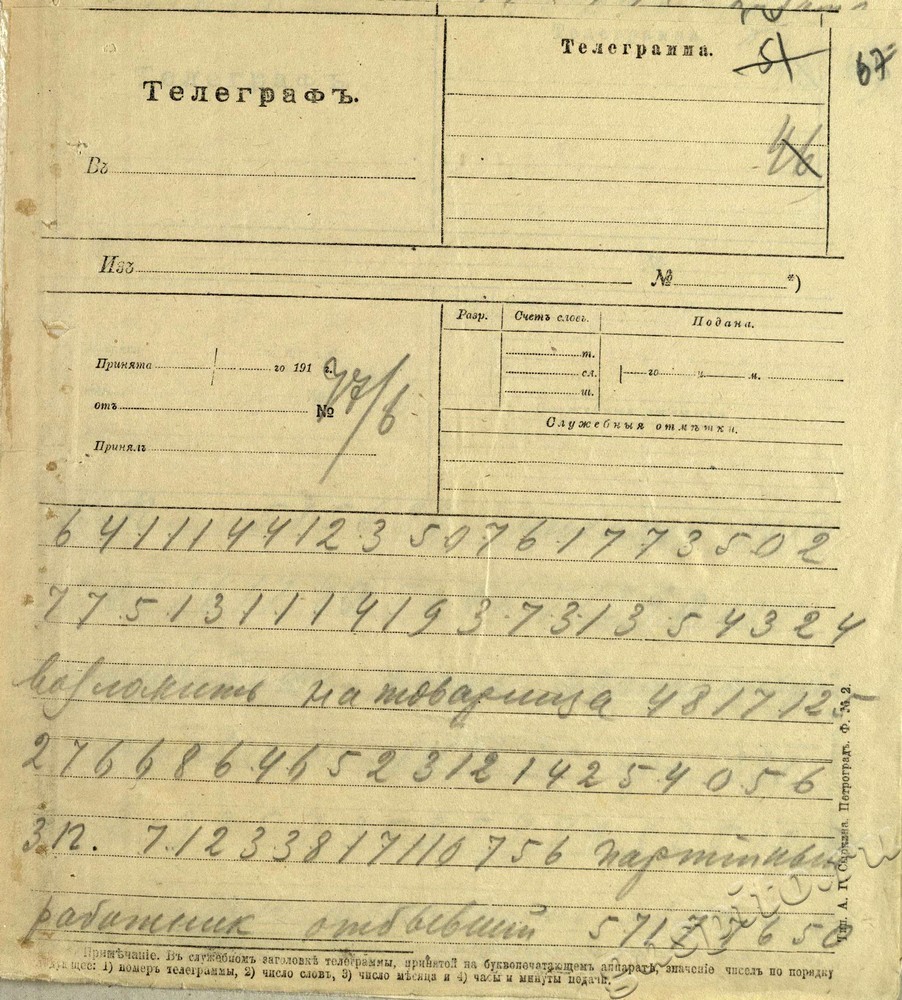 51
67
Телеграфъ.
Телеграмма.
46
Въ
Изъ № *)
Разр. Счетъ словъ. Подана.
Принята го 191 г.
т.
сл. го ч. м.
отъ № 77/6
ш.
Служебныя отмѣтки.
Принялъ
6 4 1 1 1 4 4 1 2 3 5 0 7 6 1 7 7 3 5 0 2
7 7 5 1 3 1 1 1 4 1 9 3 7 3 1 3 5 4 3 2 4
возложить на товарища 4 8 1 7 1 2 5
2 7 6 6 8 6 4 6 5 2 3 1 2 1 4 2 5 4 0 5 6
зп. 7 1 2 3 3 8 1 7 1 1 0 7 5 6 партийный
работник отбывший 5 7 1 7 7 6 5 0
Тип. А. П. Петроградъ. Ф. № 2.
Примѣчаніе. Въ служебномъ заголовкѣ телеграммы, принятой на буквопечатающемъ аппаратѣ, значеніе чиселъ по порядку
1) номеръ телеграммы, 2) число словъ, 3) число мѣсяца и 4) часы и минуты подачи.